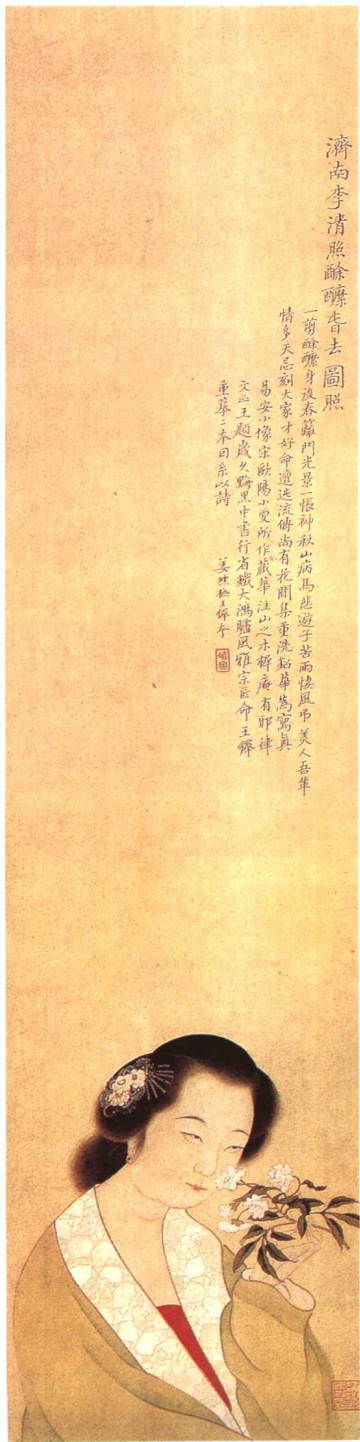 濟南李清照酴醿春去圖照
一剪酴醿身後春簾門光景一悵神秋山病馬悲遊子苦雨悽風吊美人吾輩
情多天忌刻大家才好命邅迍流傳尚有花間集重洗鉛華為寫真
易安小像宋歐陽小雯所作藏華注山之木樨庵有耶律
文正王題歲久黟黑中書行省鐵大鴻臚風雅宗匠命王繹
重摹二本因系以詩
姜 王繹奉